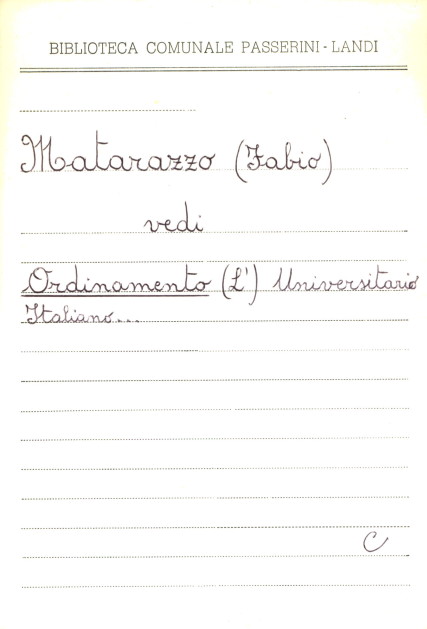 BIBLIOTECA COMUNALE PASSERINI - LANDI
Matarazzo (Fabio)
vedi
Ordinamento (L') Universitario
Italiano...
C